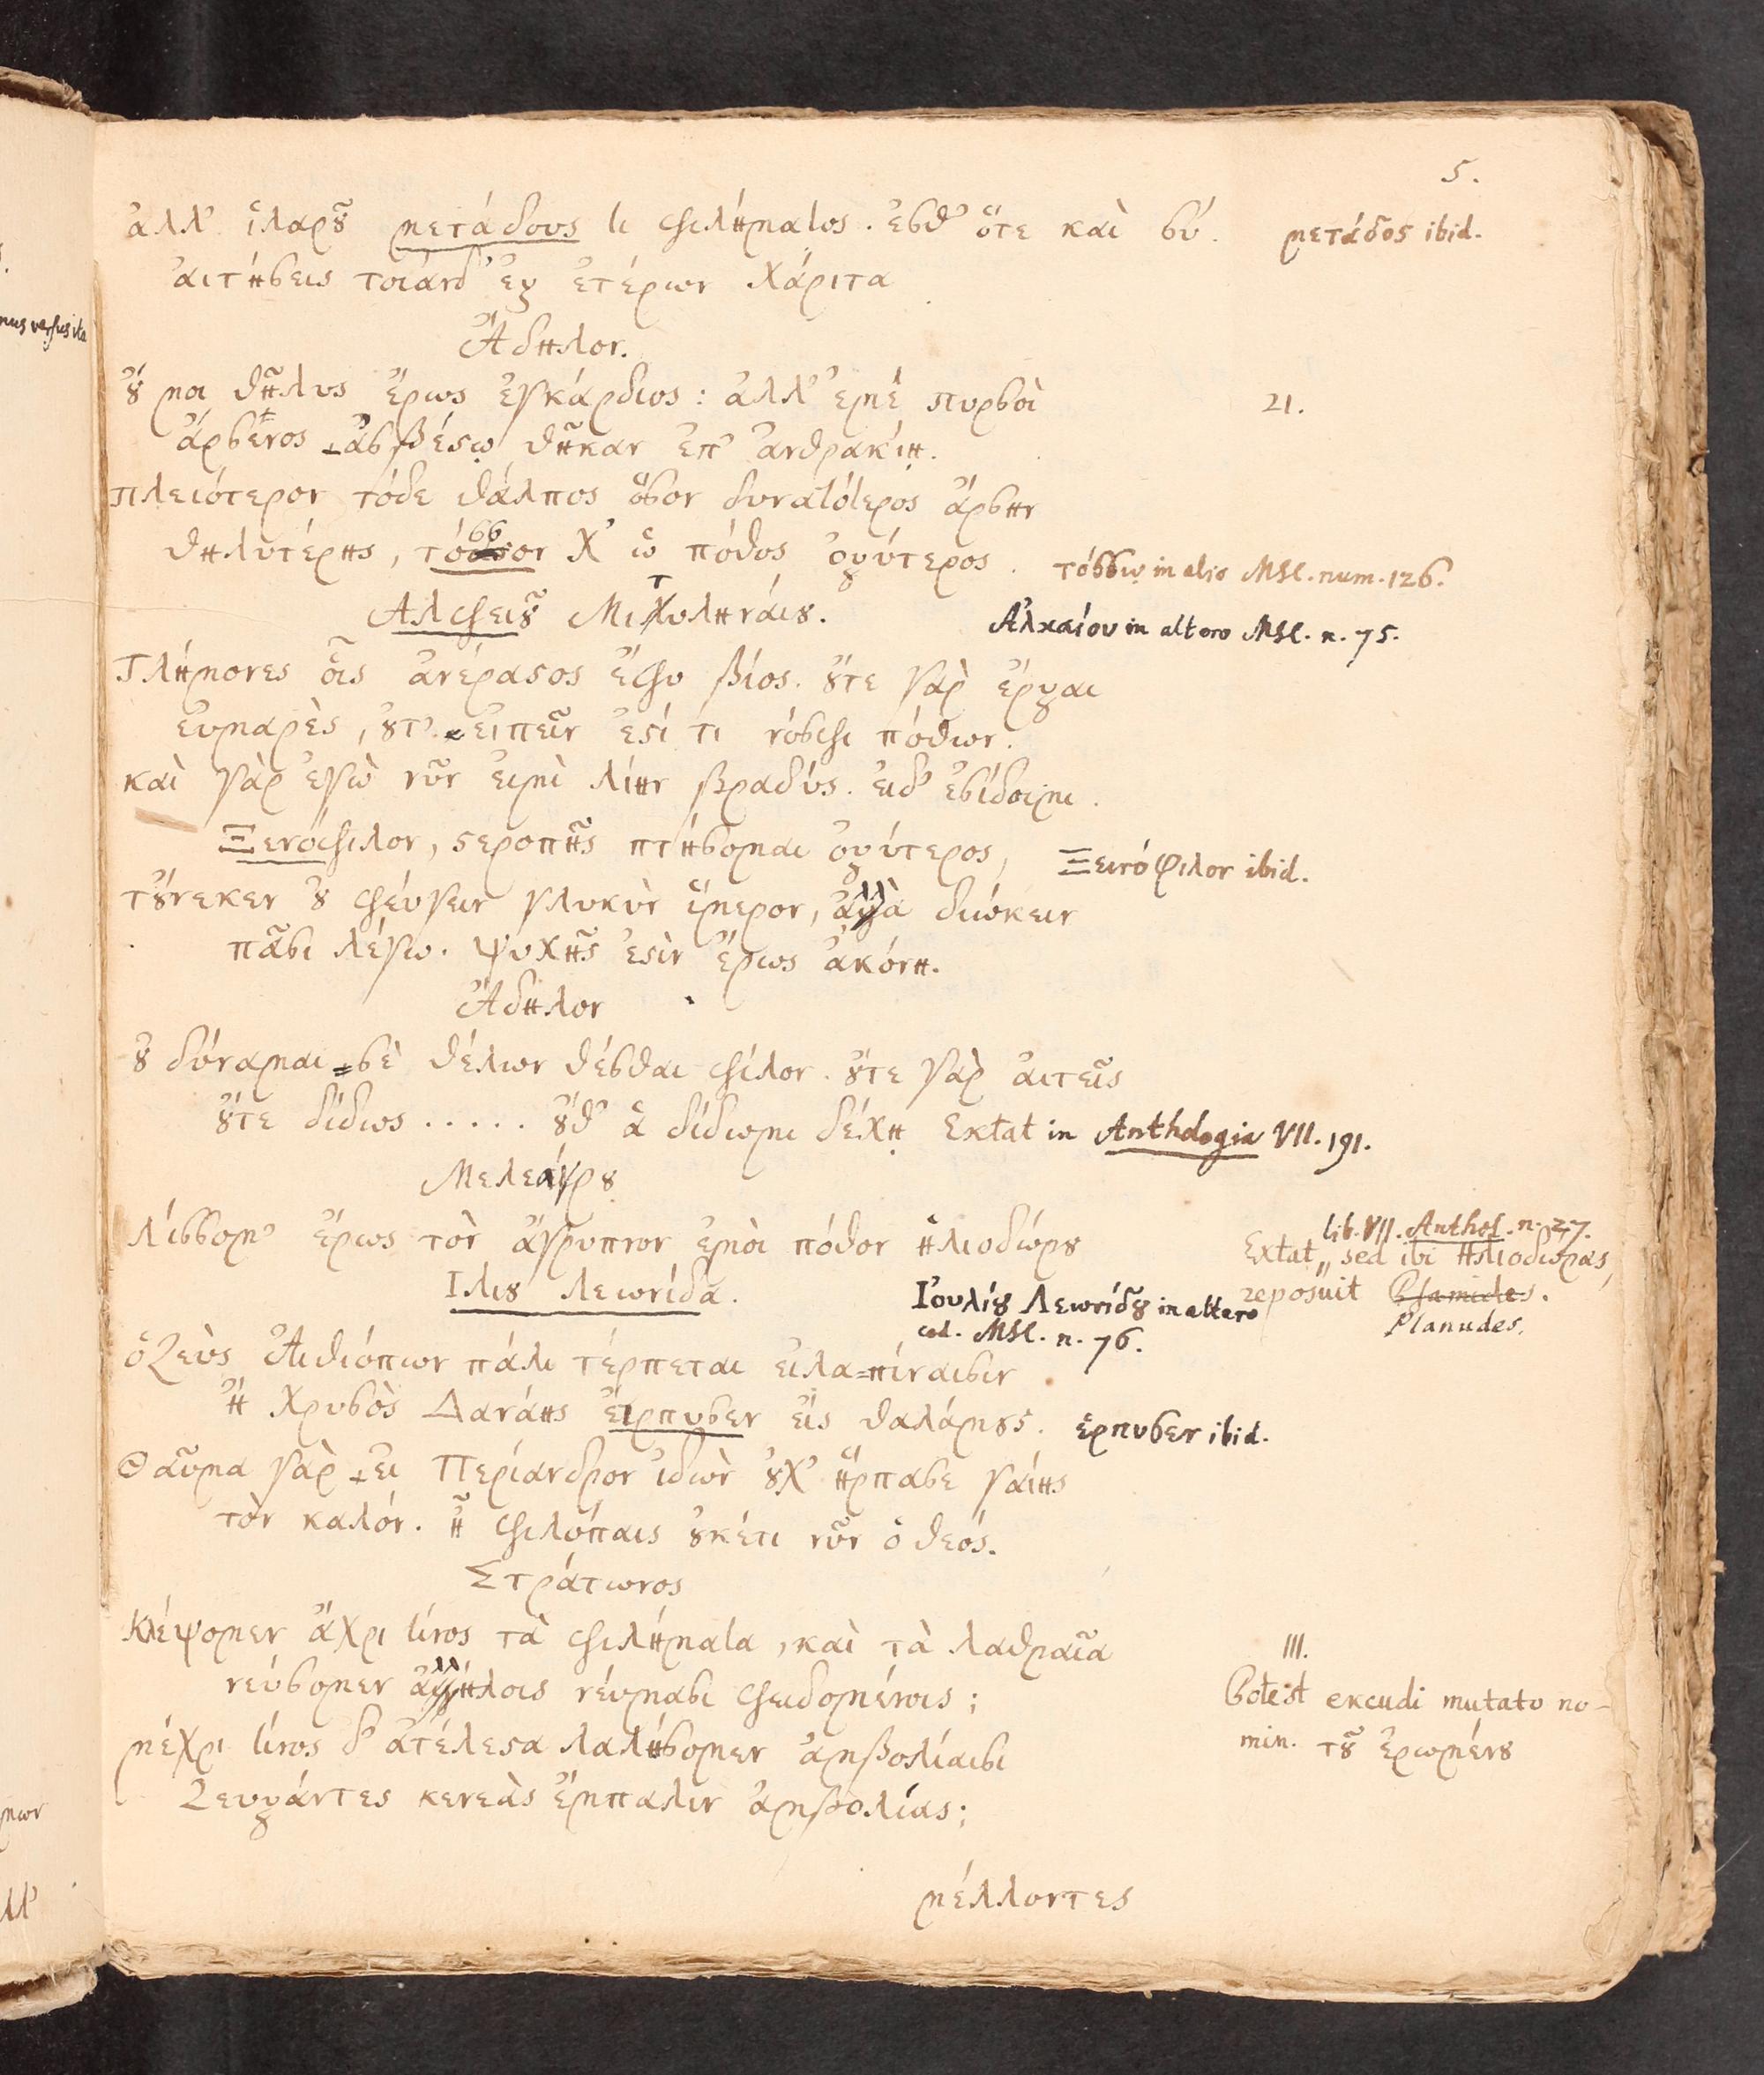 5.
ἀλλ' ἱλαροῦ μετάδους τι φιλήματος. ἔσθ' ὅτε καὶ σύ. μετάδος ibid.
αἰτήσεις τοιάνδ' ἐξ ἑτέρων χάριτα
Ἄδηλον.
οὔ μοι θῆλυς ἔρως ἐγκάρδιος: ἀλλ' ἐμέ πυρσοὶ 21.
ἄρσενος ἀσβέστῳ θῆκαν ἐπ' ἀνθρακίῃ.
πλειότερον τόδε θάλπος ὅσον δυνατότερος ἄρσην
θηλυτέρης, τόσσον χ' ὡ πόθος ὀξύτερος. τόσσῳ in alio MSC. num. 126.
Αλφειοῦ Μιτυληνάιου. Ἀλκαίου in altero MSC. n. 75.
Τλήμονες οἷς ἀνέραστος ἔφυ βίος. οὔτε γὰρ ἔρξαι
εὐμαρὲς, οὔτ' εἰπεῖν ἐστί τι νόσφι πόθων.
καὶ γὰρ ἐγὼ νῦν εἰμὶ λίην βραδύς. εἰδ' ἐσίδοιμι.
Ξενόφιλον, στεροπῆς πτήσομαι ὀξύτερος, Ξεινόφιλον ibid.
τοὔνεκεν οὐ φεύγειν γλυκὺν ἵμερον, ἀλλὰ διώκειν
πᾶσι λέγω. ψυχῆς ἐστὶν ἔρως ἀκόνη.
Ἄδηλον
οὐ δύναμαι σὲ θέλων θέσθαι φίλον. οὔτε γὰρ αἰτεῖς
οὔτε δίδως ..... οὔθ' ἃ δίδωμι δέχῃ Extat in Anthologia VII. 191.
Μελεάγρου
λίσσομ' ἔρως τὸν ἄγρυπνον ἐμοὶ πόθον ἡλιοδώρου
lib. VII. Anthol. n. 27.
Extat, sed ibi Ἡλιοδώρας,
reposuit Planudes.
Ιλιου Λεωνίδα. Ἰουλίου Λεωνίδου in altero
cod. MSC. n. 76.
ὁ Ζεὺς Αἰθιόπων πάλι τέρπεται εἰλαπίναισιν
ἢ χρυσὸς Δανάης εἵρπυσεν εἰς θαλάμους. ἕρπυσεν ibid.
Θαῦμα γὰρ εἰ Περίανδρον ἰδὼν οὐχ' ἥρπασε γαίης
τὸν καλόν. ἢ φιλόπαις οὐκέτι νῦν ὁ θεός.
Στράτωνος
Κλέψομεν ἄχρι τίνος τὰ φιλήματα, καὶ τὰ λαθραῖα III.
νεύσομεν ἀλλήλοις νεύμασι φειδομένοις; Potest excudi mutato no-
μέχρι τίνος δ' ἀτέλεστα λαλήσομεν ἀμβολίαισι min. τοῦ ἐρωμένου
ζευξάντες κενεὰς ἔμπαλιν ἀμβολίας;
μέλλοντες